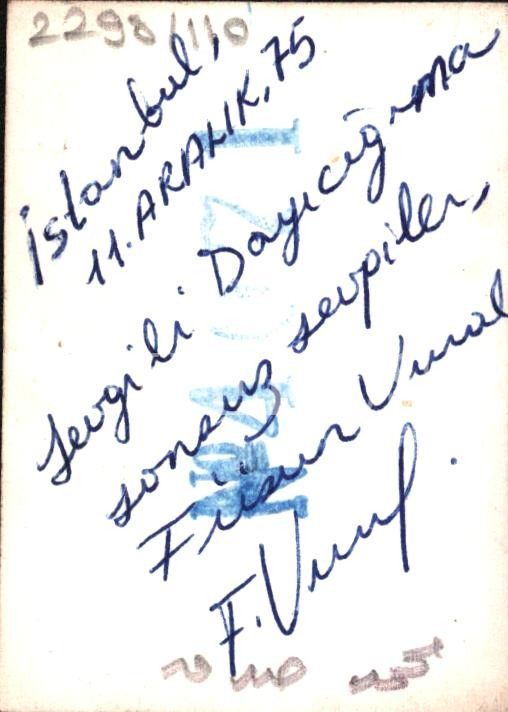 2298/110
İstanbul,
11.ARALIK,75
sevgili Dayıcığıma
sonsuz sevgiler,
Füsun Vural
F.Vural.